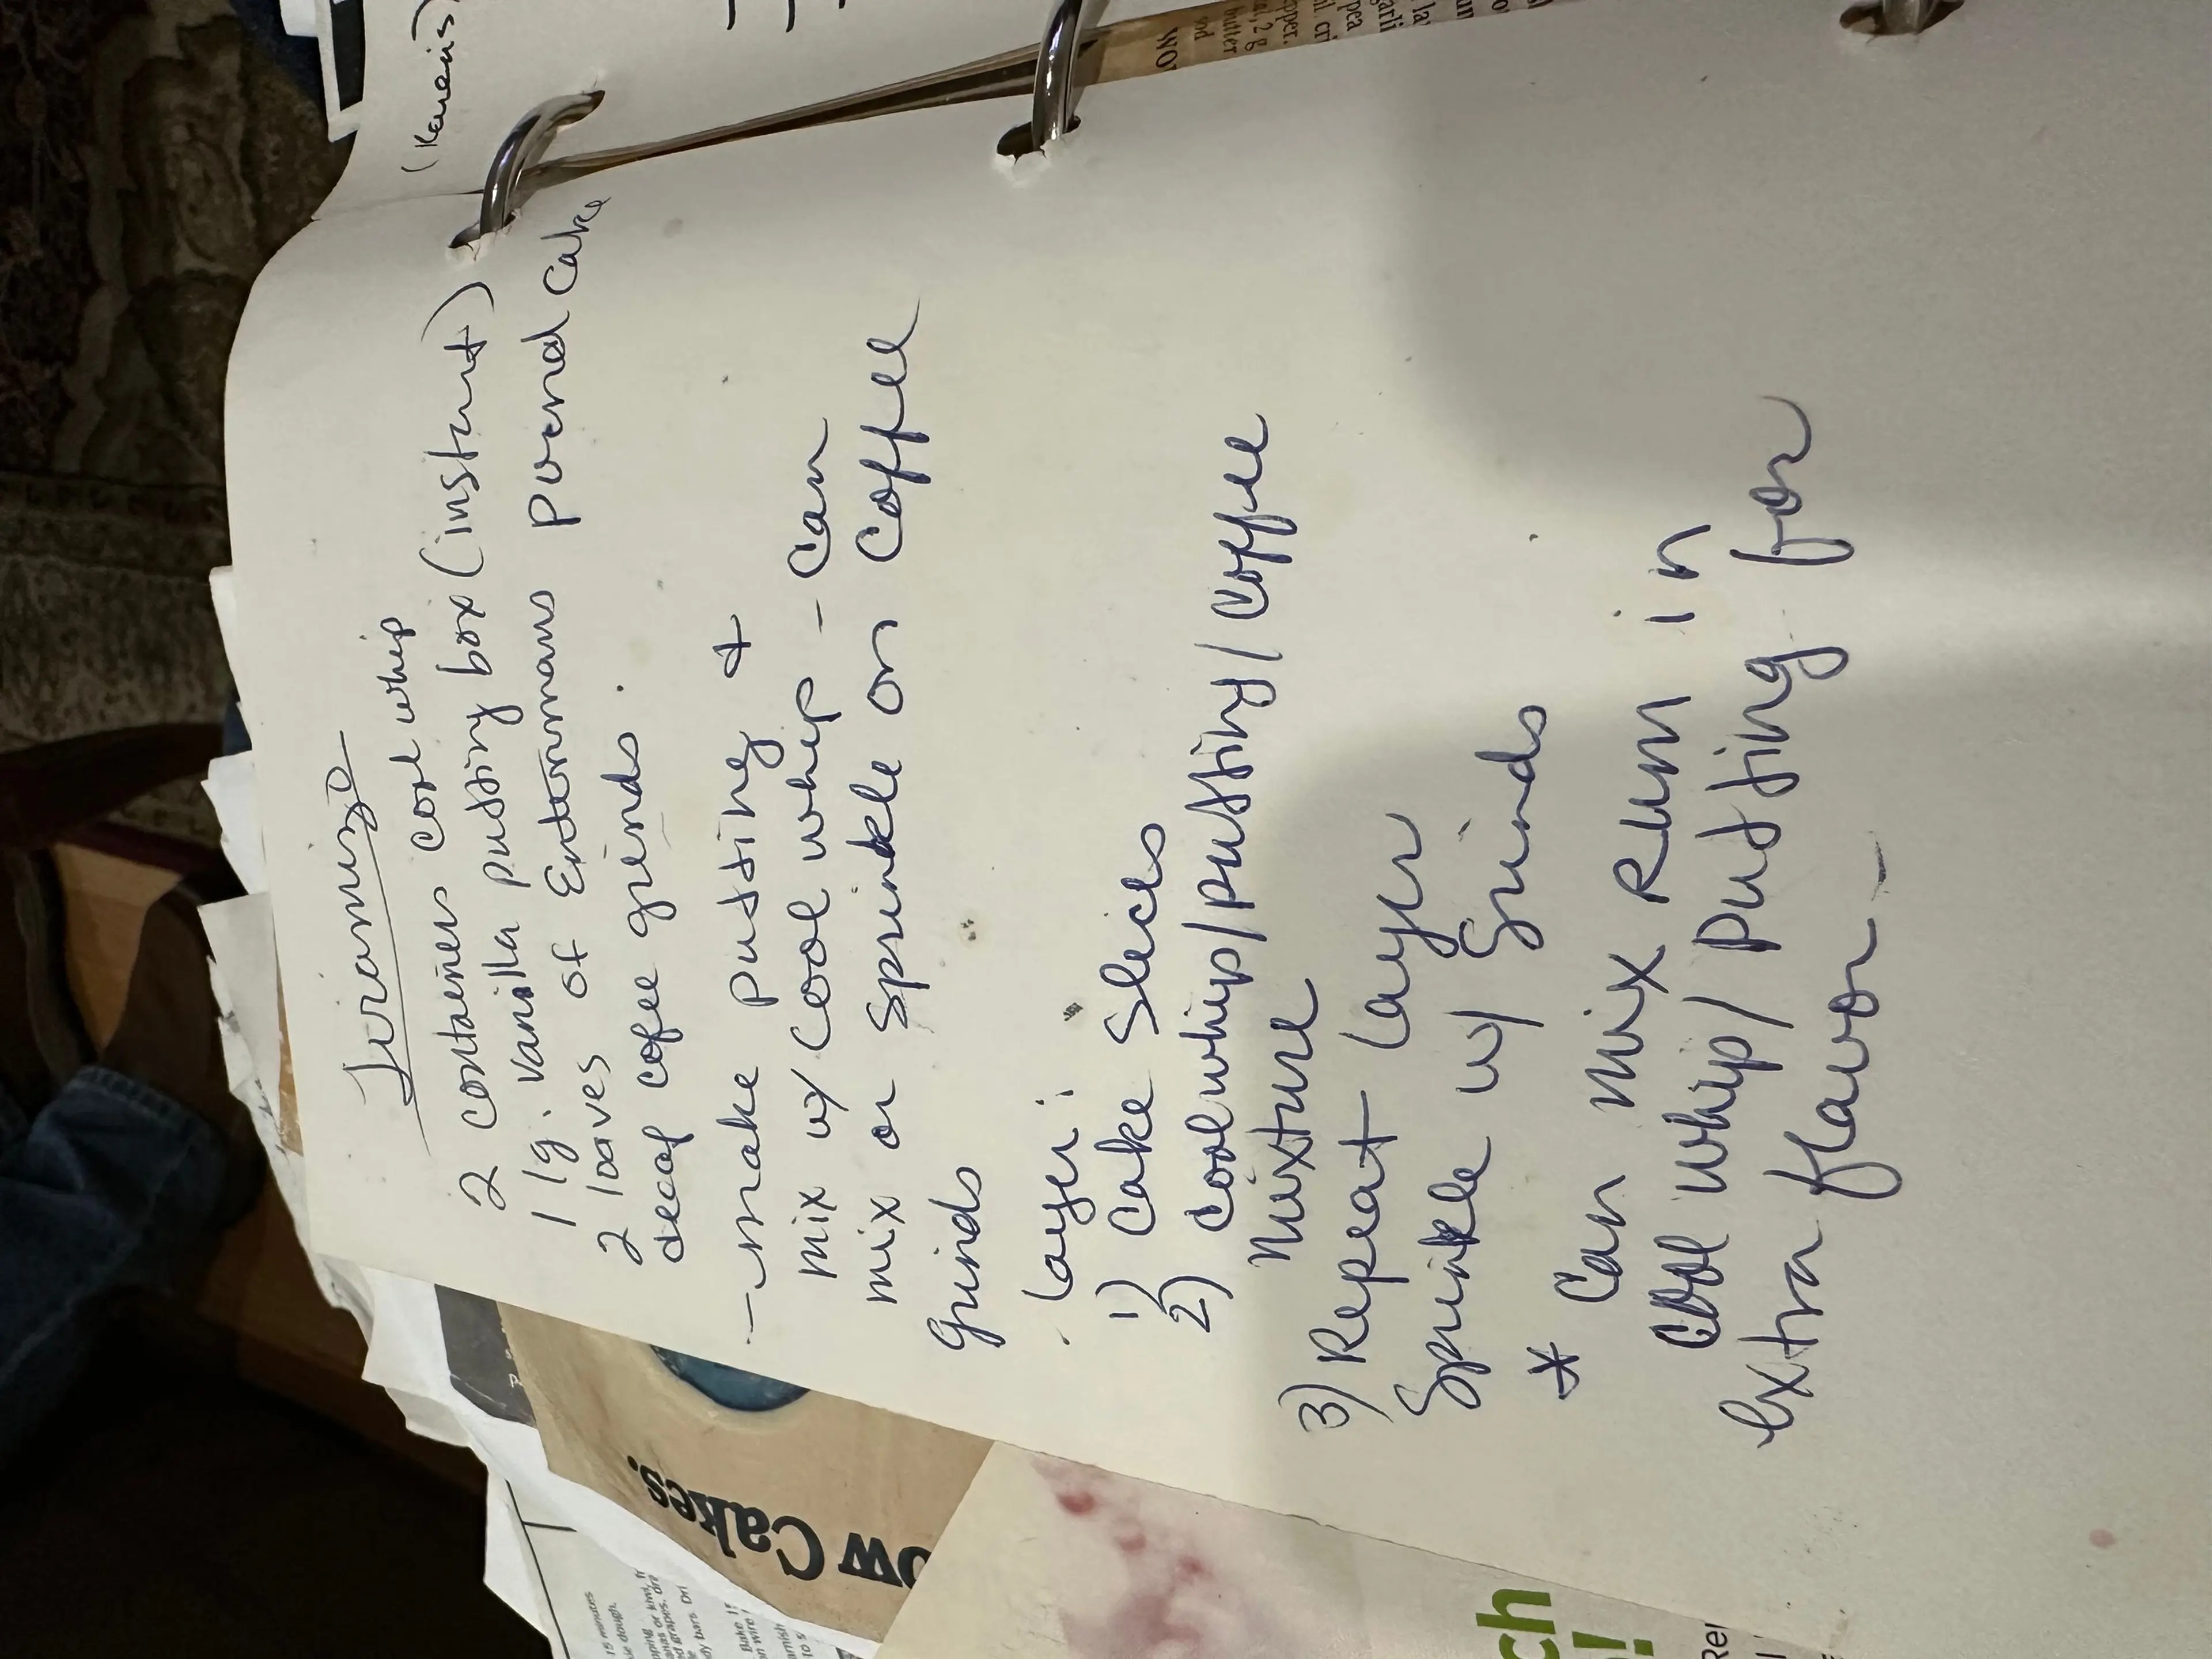 Tiramiso
2 containers cool whip
1 lg. vanilla pudding box (instant)
2 loaves of Entenmans pound cake
decaf coffee grinds
- make pudding &
mix w/ cool whip - can
mix or sprinkle on coffee
grinds
Layer:
1) Cake Slices
2) Cool whip/pudding/coffee
mixture
3) Repeat Layer
Sprinkle w/ Grinds
* Can mix Rum in
Cool whip/pudding for
Extra flavor -
ow Cakes.
15 minutes
ch